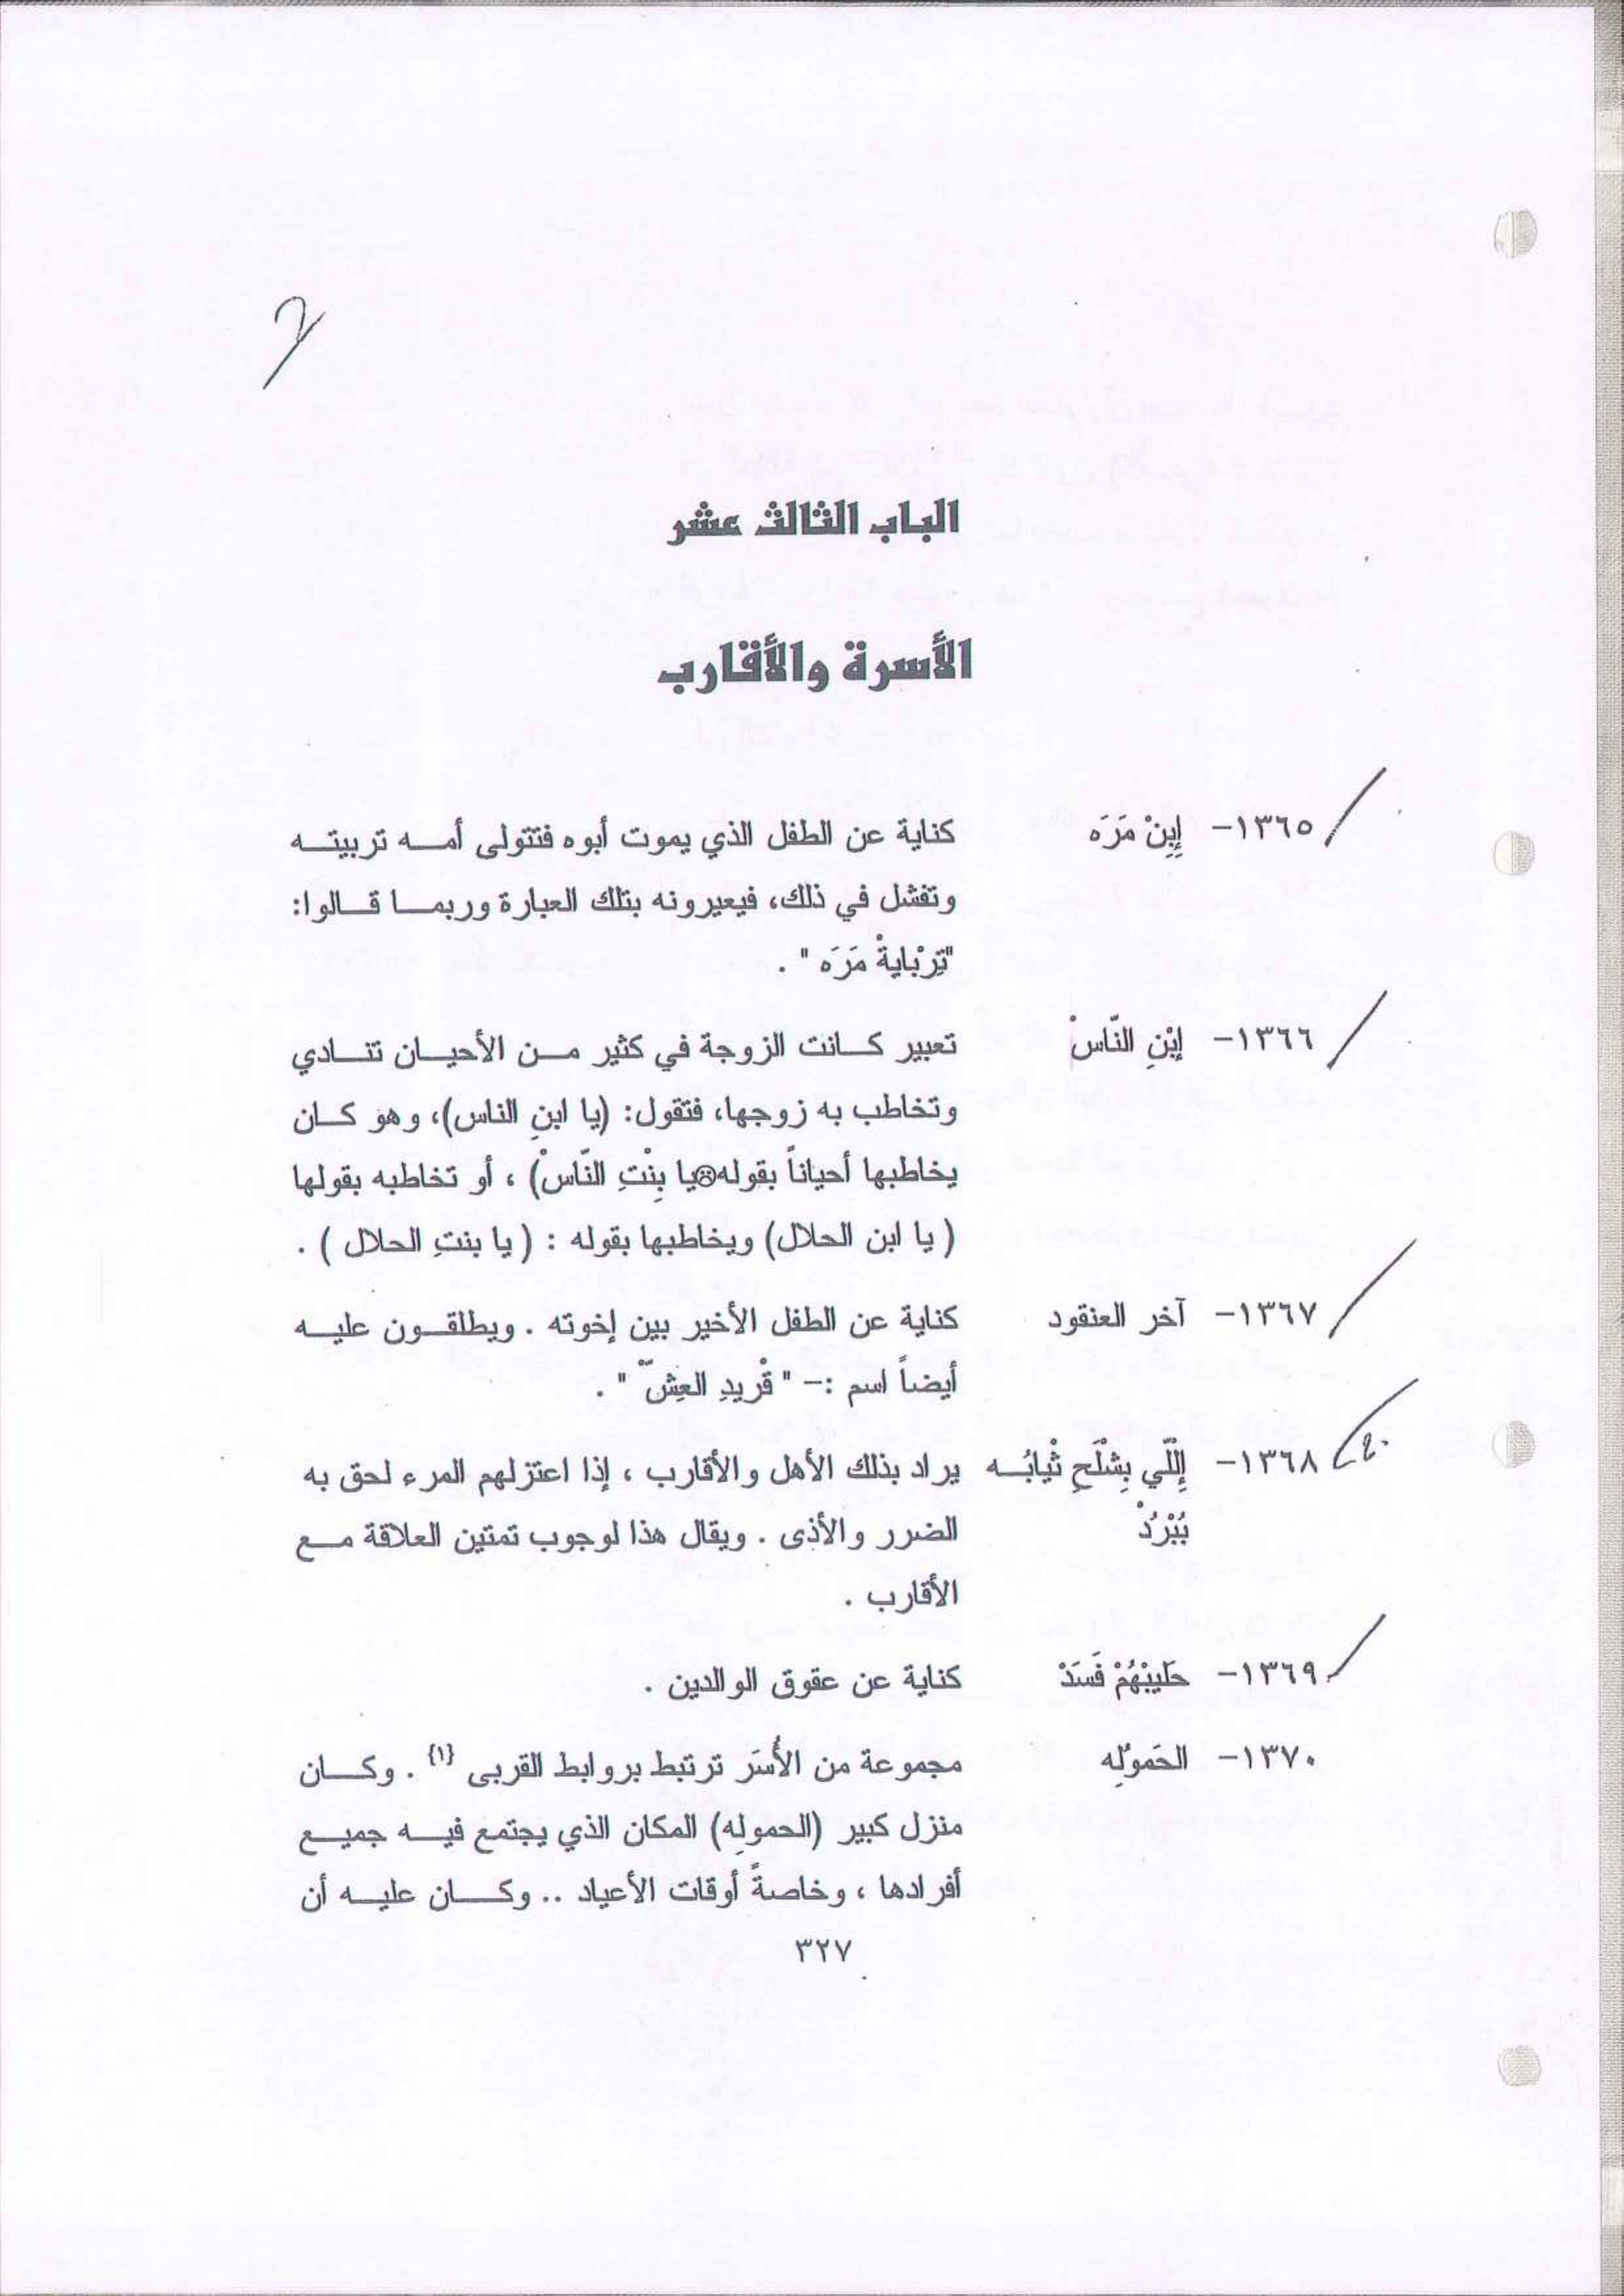 الباب الثالث عشر
الأسرة والأقارب
١٣٦٥- إِبِنْ مَرَه كناية عن الطفل الذي يموت أبوه فتتولى أمـــه تربيتـــه
وتفشل في ذلك، فيعيرونه بتلك العبارة وربمـــا قـــالوا:
"تِرْبايةْ مَرَه " .
١٣٦٦- إبْنِ النّاسْ تعبير كـــانت الزوجة في كثير مـــن الأحيـــان تنـــادي
وتخاطب به زوجها، فتقول: (يا ابنِ الناس)، وهو كـــان
يخاطبها أحياناً بقوله☹يا بِنْتِ النّاسْ) ، أو تخاطبه بقولها
( يا ابن الحلال) ويخاطبها بقوله : ( يا بنتِ الحلال ) .
١٣٦٧- آخر العنقود كناية عن الطفل الأخير بين إخوته . ويطلقـــون عليـــه
أيضاً اسم :- " قْريدِ العِشّ " .
١٣٦٨- إِلّلي بِشْلَحِ ثْيابُـــه يراد بذلك الأهل والأقارب ، إذا اعتزلهم المرء لحق به
بُبْرُدْ الضرر والأذى . ويقال هذا لوجوب تمتين العلاقة مـــع
الأقارب .
١٣٦٩- حَليبْهُمْ فَسَدْ كناية عن عقوق الوالدين .
١٣٧٠- الحَمولِه مجموعة من الأُسَر ترتبط بروابط القربى {١} . وكـــان
منزل كبير (الحمولِه) المكان الذي يجتمع فيـــه جميـــع
أفرادها ، وخاصةً أوقات الأعياد .. وكـــان عليـــه أن
٣٢٧